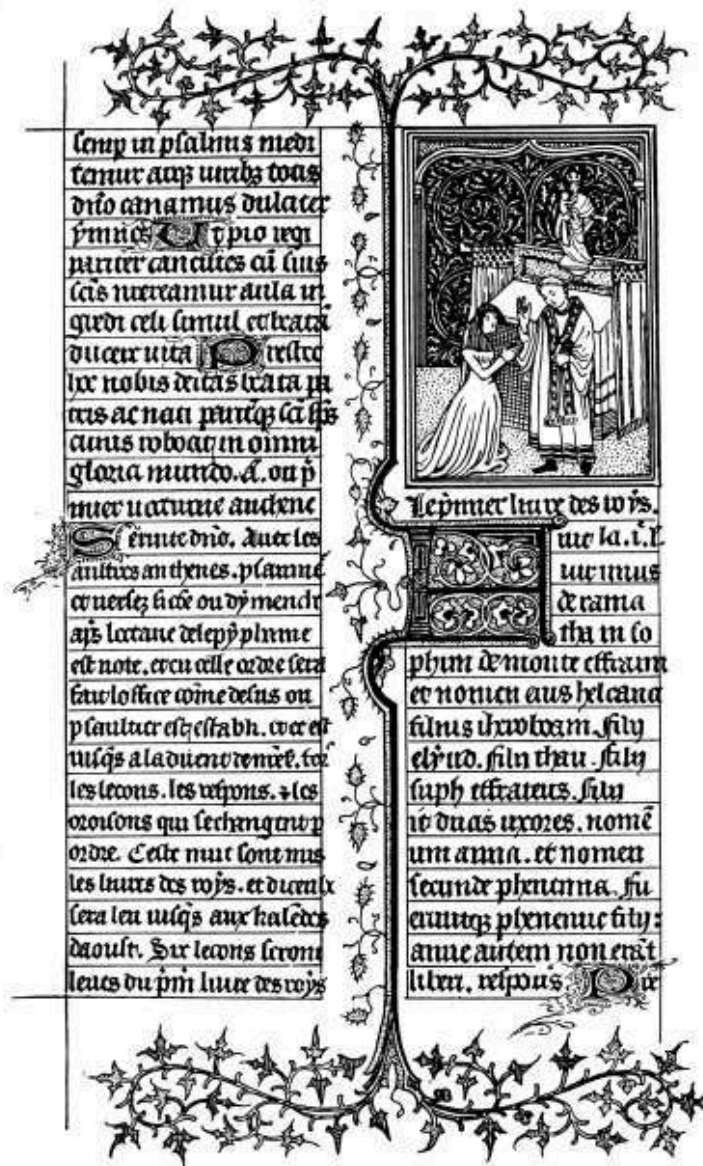 semp in psalmis medi
temur atqз viribз totis
dño canamus dulciter
ỳmnos Ut pio regi
pariter canētes cū suis
scīs mereamur aula in
gredi celi simul et beatā
ducere vita Prestet
hoc nobis deitas beata pa
tris ac nati pariterqз scī sps
cuius reboat in omni
gloria mundo. A. ou p̄
mier nocturne anthene
Seruite dño. Avec les
aultres anthenes. psaumē
et versez sicõe ou dỳmenche
aps loctave de lepỳphanie
est note. et en celle ordre sera
fait loffice cõme desus ou
psaultier est establi. et ce est
iusqs a ladvent
les lecons. les respons. les
oroisons qui se changent p
ordre. Ceste nuit sont mis
les livres des roỳs. et diceulx
sera leu iusqs aux kalēdes
daoust. Six lecons seront
leues du pm̄ livre des roỳs
Le p̄mier livre des roỳs.
Fuit vir unus
de rama
tha in so
phim de monte effraim
et nomen eius helcana
filius iheroboam. filỳ
elỳud. filii thau. filỳ
suph effrateus.
it duas uxores. nomē
uni anna. et nomen
secunde phenenna. fu
eruntqз phenenne filỳ:
anne autem non erāt
liberi. respons